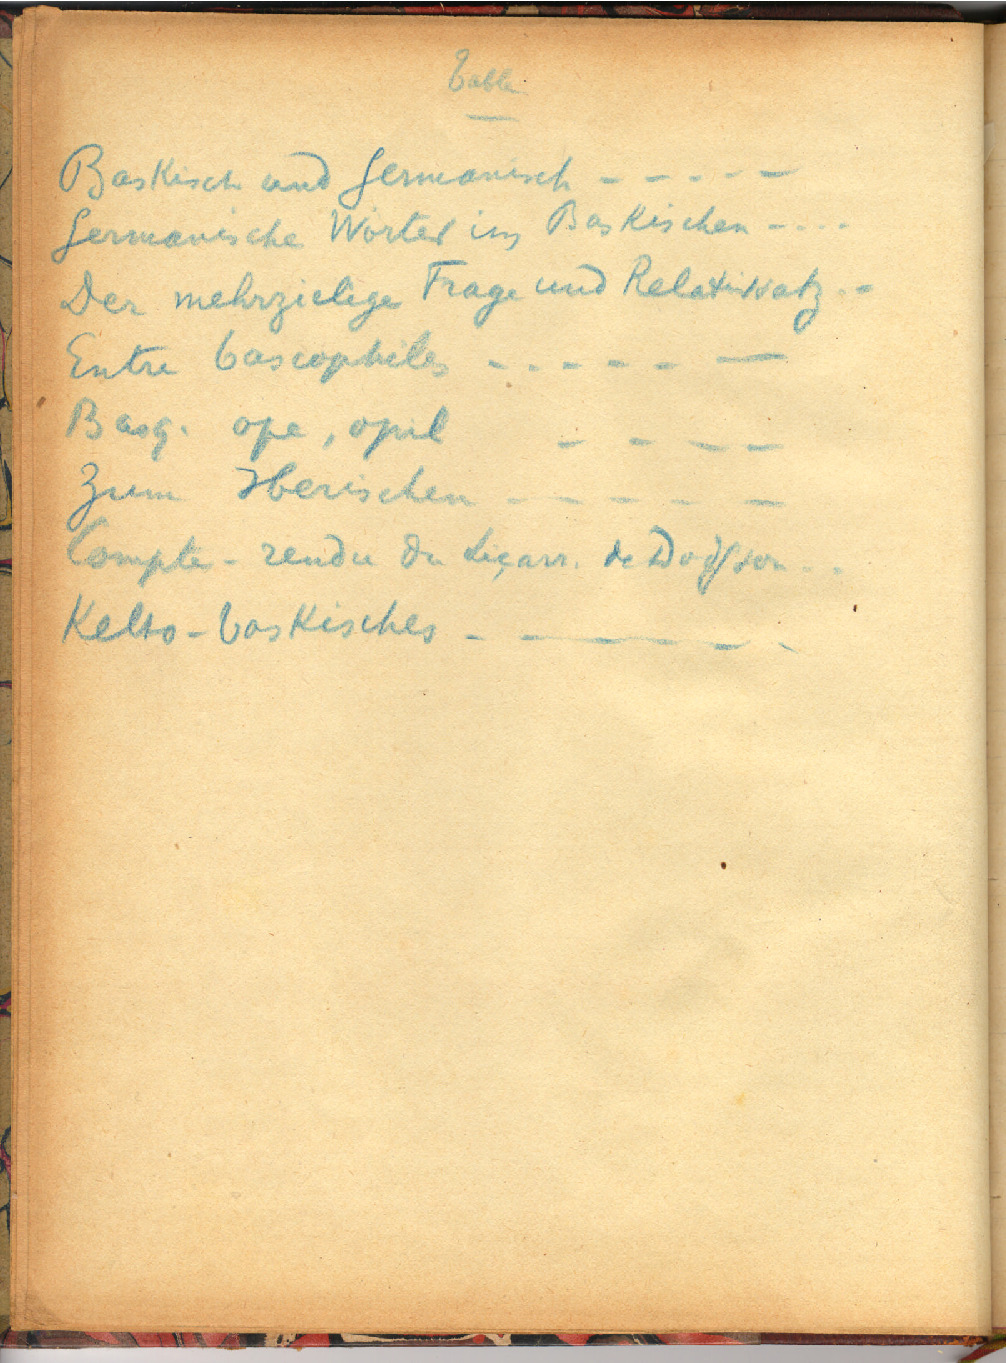 Table
Baskisch und Germanisch - - - - -
Germanische Wörter im Baskischen - . . .
Der mehrzielige Frage und Relativsatz . -
Entre bascophiles - - - - - —
Basq. ope, opil - - - -
Zum Iberischen - - - - - -
Compte-rendu du Liçarr. de Dodgson . .
Kelto-baskisches - - - - -